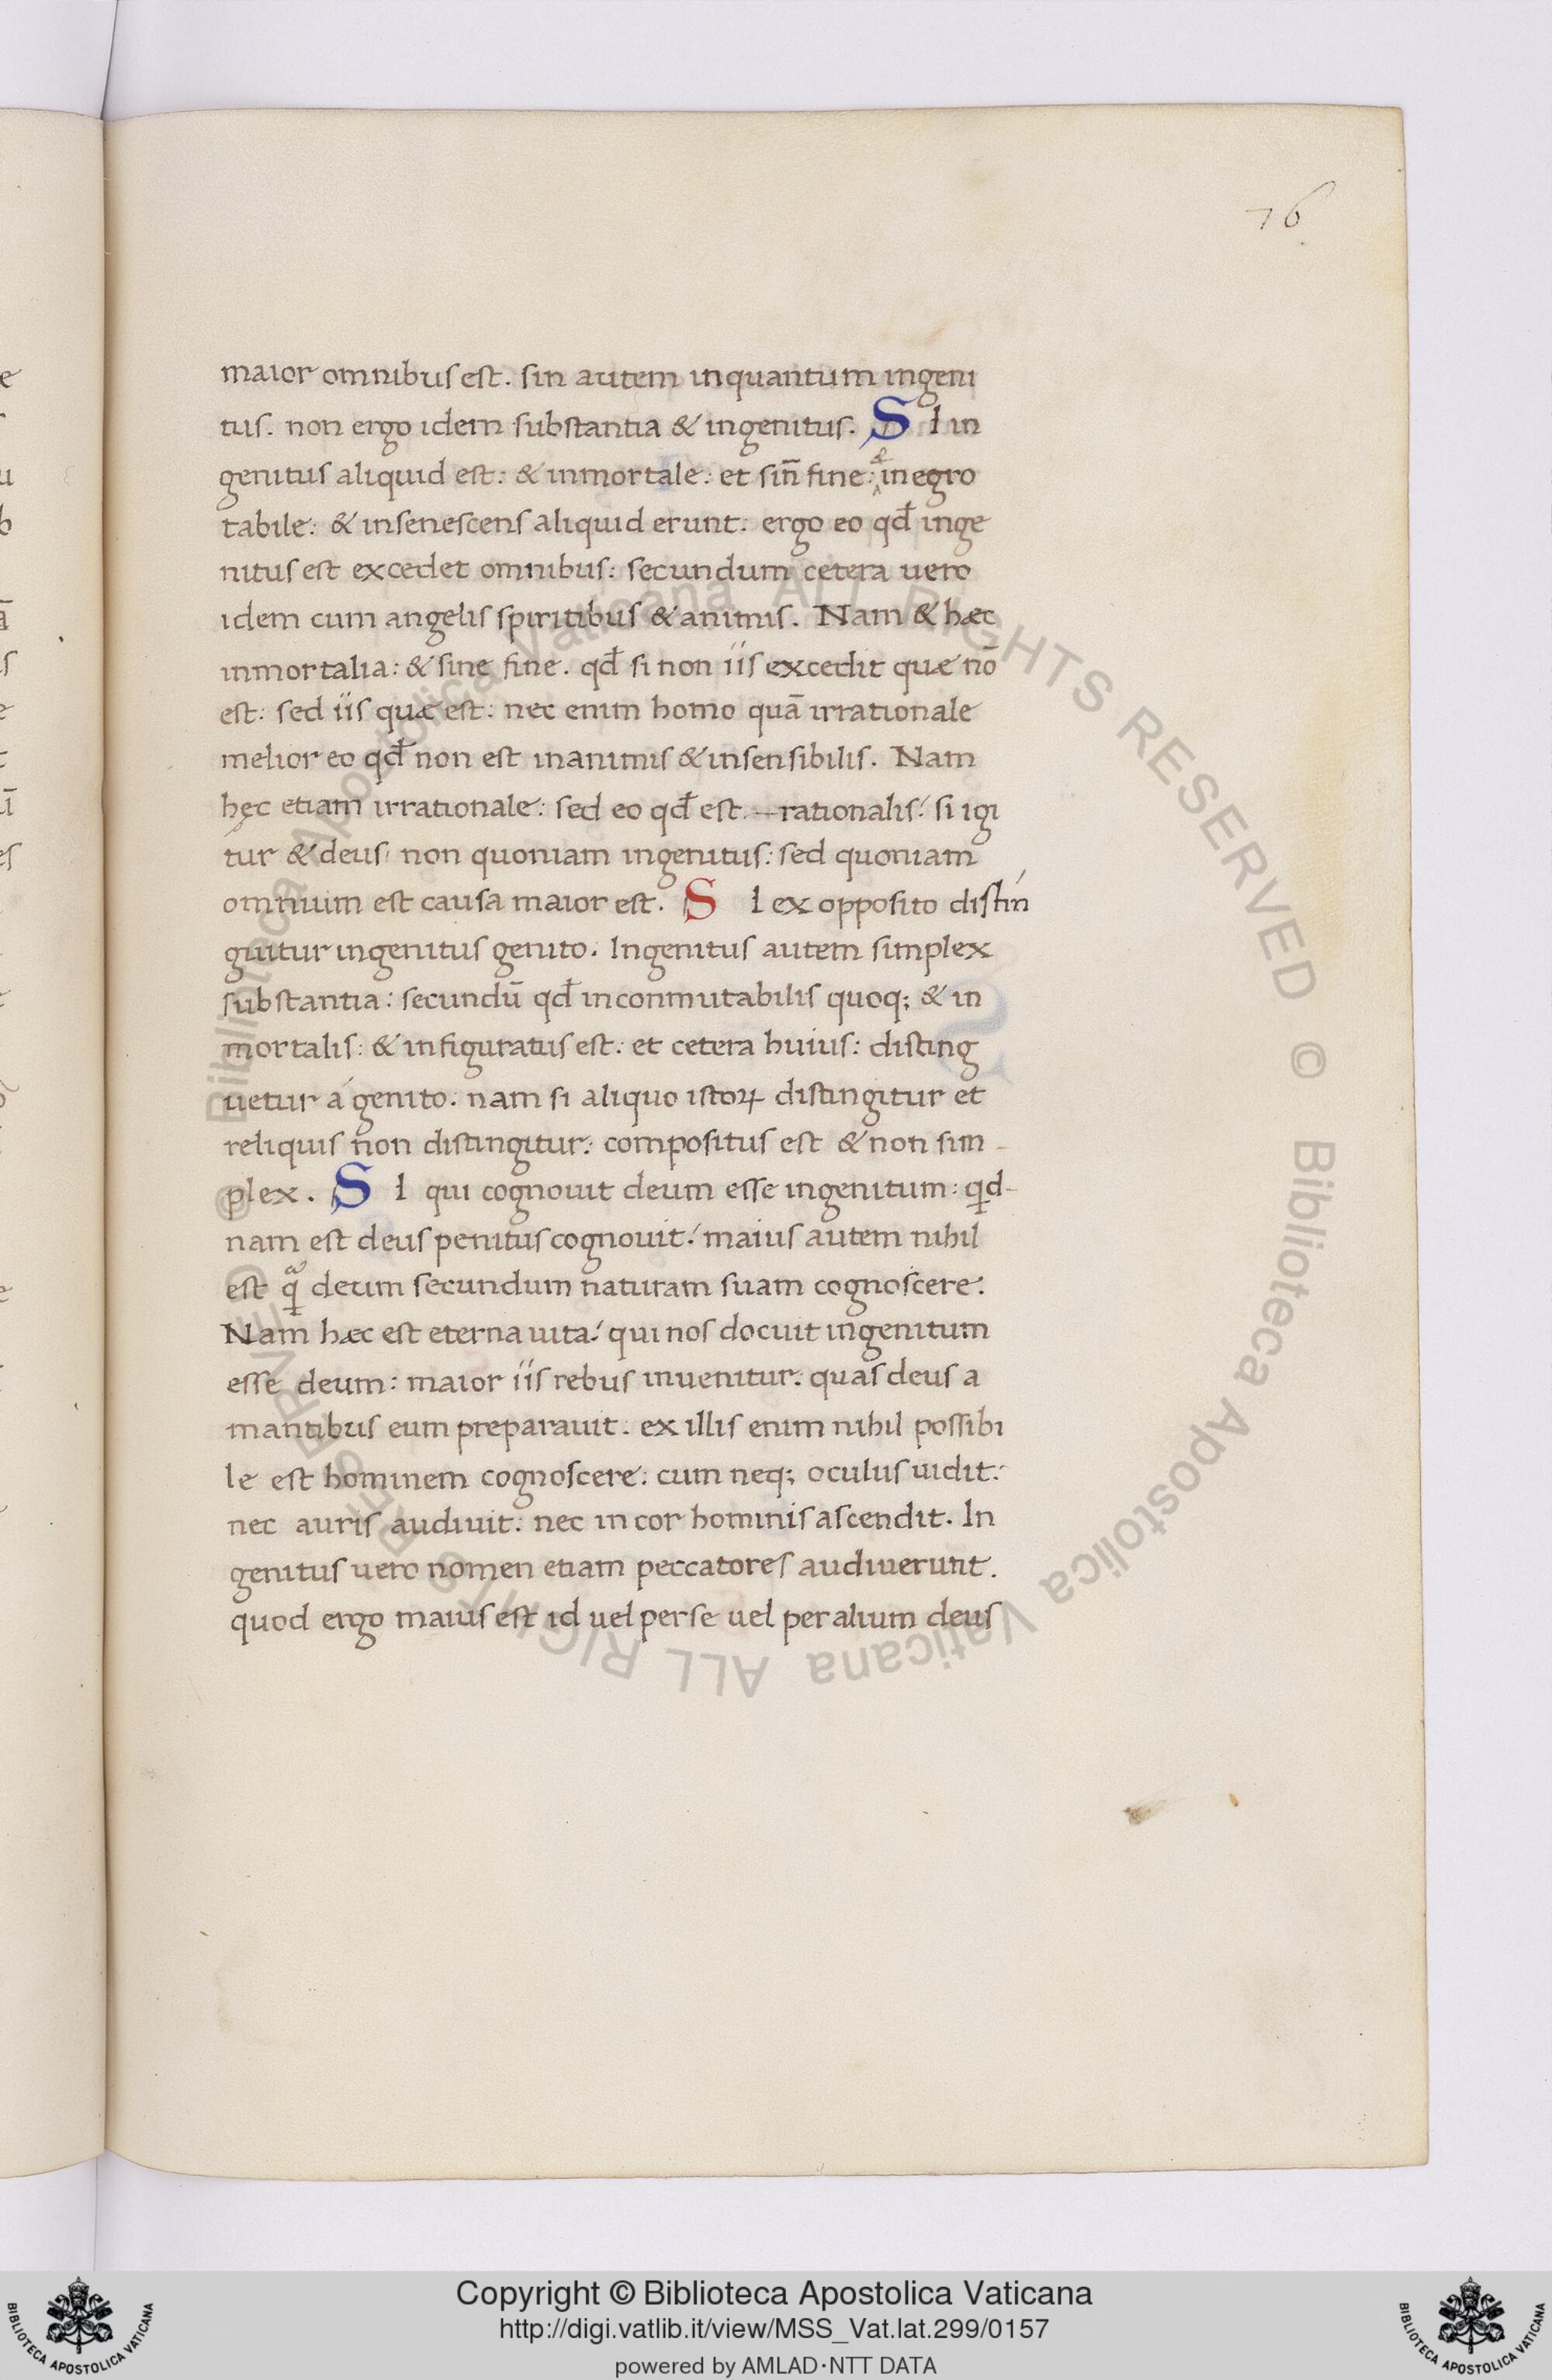 76
maior omnibus est. sin autem inquantum ingeni
tus. non ergo idem substantia & ingenitus. S I in
genitus aliquid est: & inmortale: et sin̄ fine: & inegro
tabile: & insenescens aliquid erunt: ergo eo qđ inge
nitus est excedet omnibus: secundum cetera uero
idem cum angelis spiritibus & animis. Nam & hæc
inmortalia: & sine fine. qđ si non iis excedit quæ nō
est: sed iis quæ est: nec enim homo quā irrationale
melior eo qđ non est inanimis & insensibilis. Nam
hęc etiam irrationale: sed eo qđ est —rationalis: si igi
tur & deus non quoniam ingenitus: sed quoniam
omnium est causa maior est. S I ex opposito distin
guitur ingenitus genito. Ingenitus autem simplex
substantia: secundū qđ inconmutabilis quoq; & in
mortalis: & infiguratus est: et cetera huius: disting
uetur a genito. nam si aliquo istoꝝ distingitur et
reliquis non distingitur: compositus est & non sim-
plex. S I qui cognouit deum esse ingenitum: qid-
nam est deus penitus cognouit: maius autem nihil
est qͣ deum secundum naturam suam cognoscere:
Nam hæc est eterna uita: qui nos docuit ingenitum
esse deum: maior iis rebus inuenitur: quas deus a
mantibus eum preparauit. ex illis enim nihil possibi
le est hominem cognoscere: cum neq; oculus uidit:
nec auris audiuit: nec in cor hominis ascendit. In
genitus uero nomen etiam peccatores audiuerunt.
quod ergo maius est id uel per se uel per alium deus
© Biblioteca Apostolica Vaticana ALL RIGHTS RESERVED © Biblioteca Apostolica Vaticana ALL RIGHTS RESERVED
Copyright © Biblioteca Apostolica Vaticana
http://digi.vatlib.it/view/MSS_Vat.lat.299/0157
powered by AMLAD·NTT DATA
BIBLIOTECA APOSTOLICA VATICANA
BIBLIOTECA APOSTOLICA VATICANA